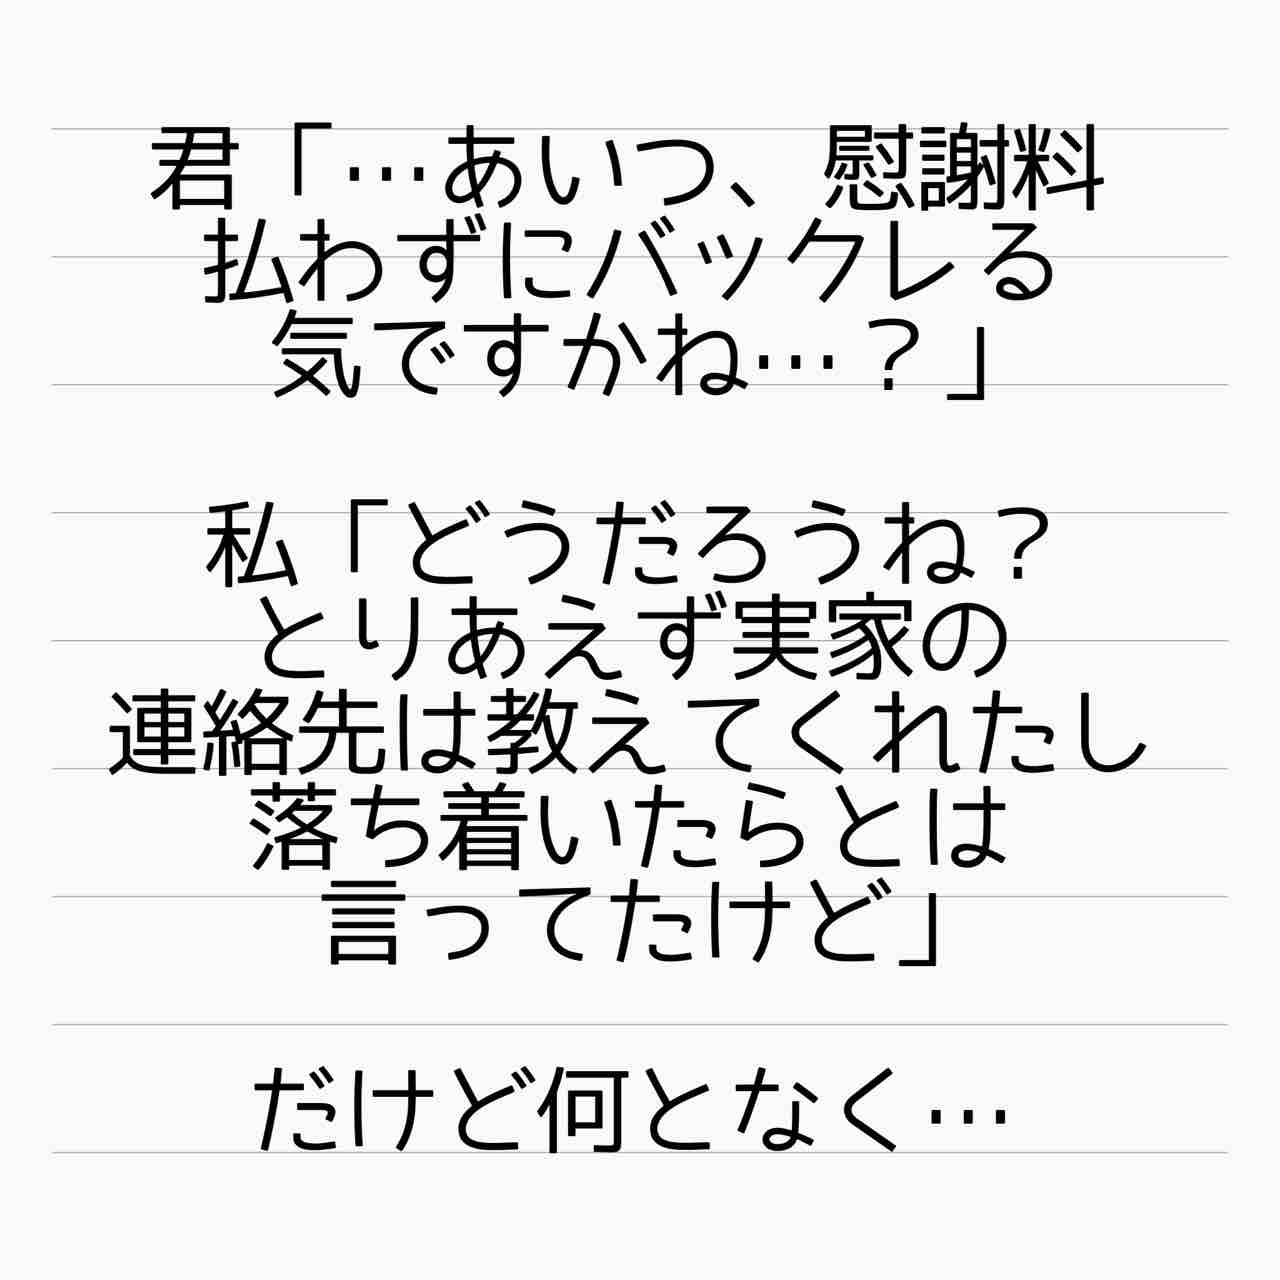 君「…あいつ、慰謝料
払わずにバックレる
気ですかね…？」
私「どうだろうね？
とりあえず実家の
連絡先は教えてくれたし
落ち着いたらとは
言ってたけど」
だけど何となく…